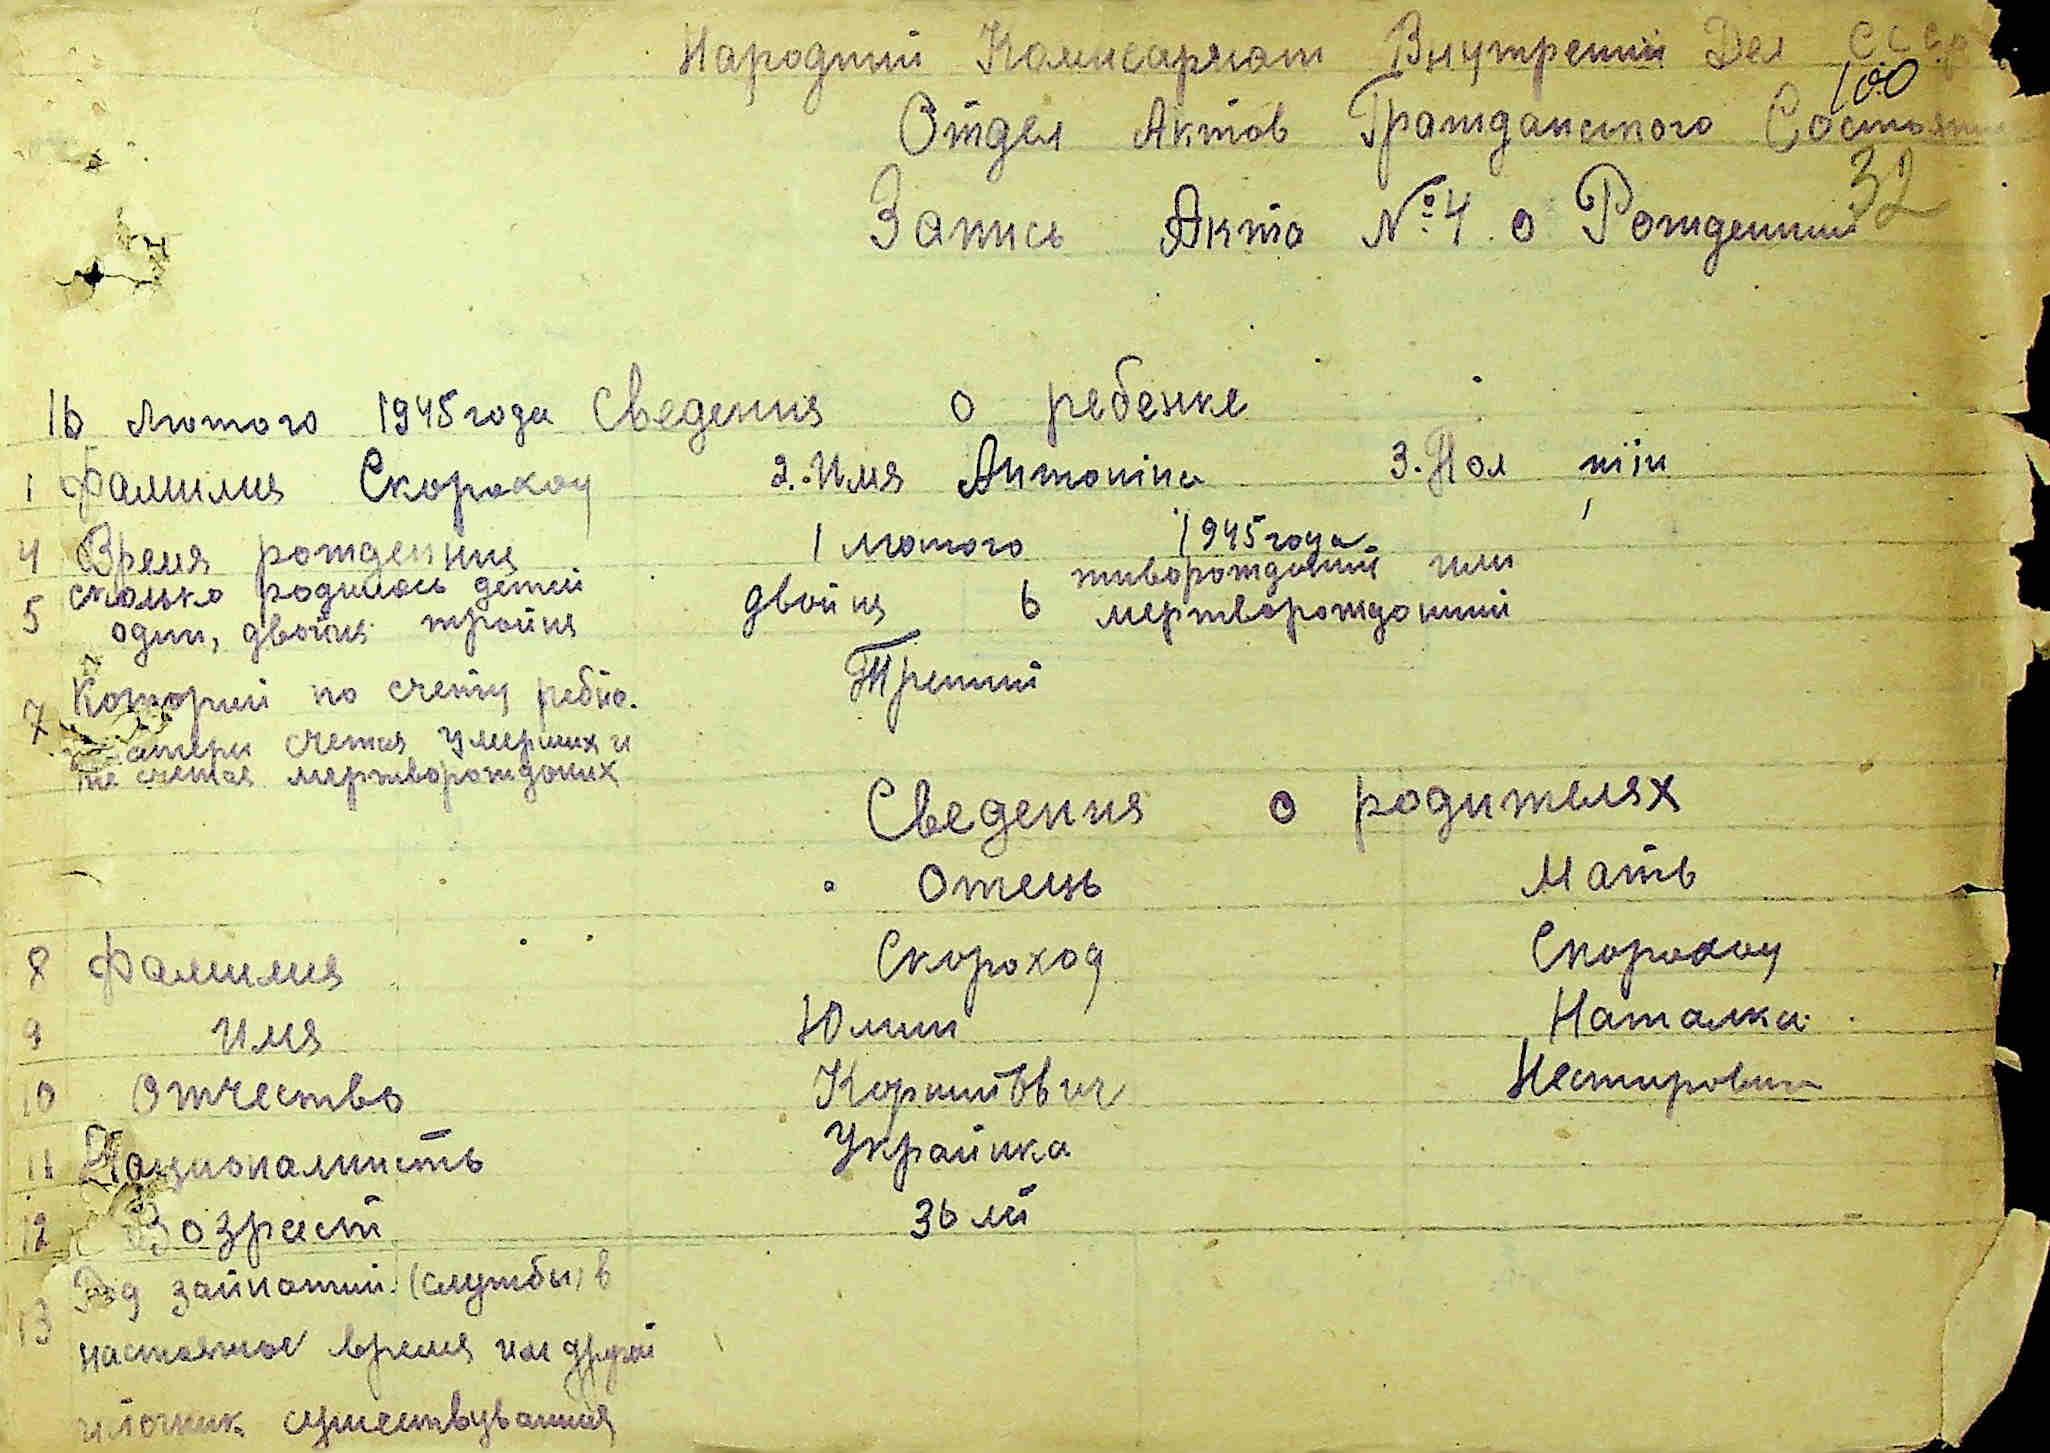 Народний Комисариат Внутрений Дел СССР
100
Отдел Актов Гражданского Состояни
32
Запись Акта № 4 о Рождении
16 лютого 1945 года Сведения о ребенке
1 Фамилия Скороход 2. Имя Антонина 3. Пол жін
4 Время рождения 1 лютого 1945 года
5 сколько родилось детей один, двойня тройня двойня 6 живорождоний или мертворождоний
7 Которий по счету ребйо. Третий
атери счетая умерших и
не счетая мертворождоних
Сведения о родителях
Отець Мать
8 Фамилия Скороход Скороход
9 Имя Юлии Наталка
10 Отчество Корнийович Нестировна
11 Национальность Украинка
12 Возраст 36 лй
13 Род зайнатий (службы) в
настоящое время или другой
источник существування